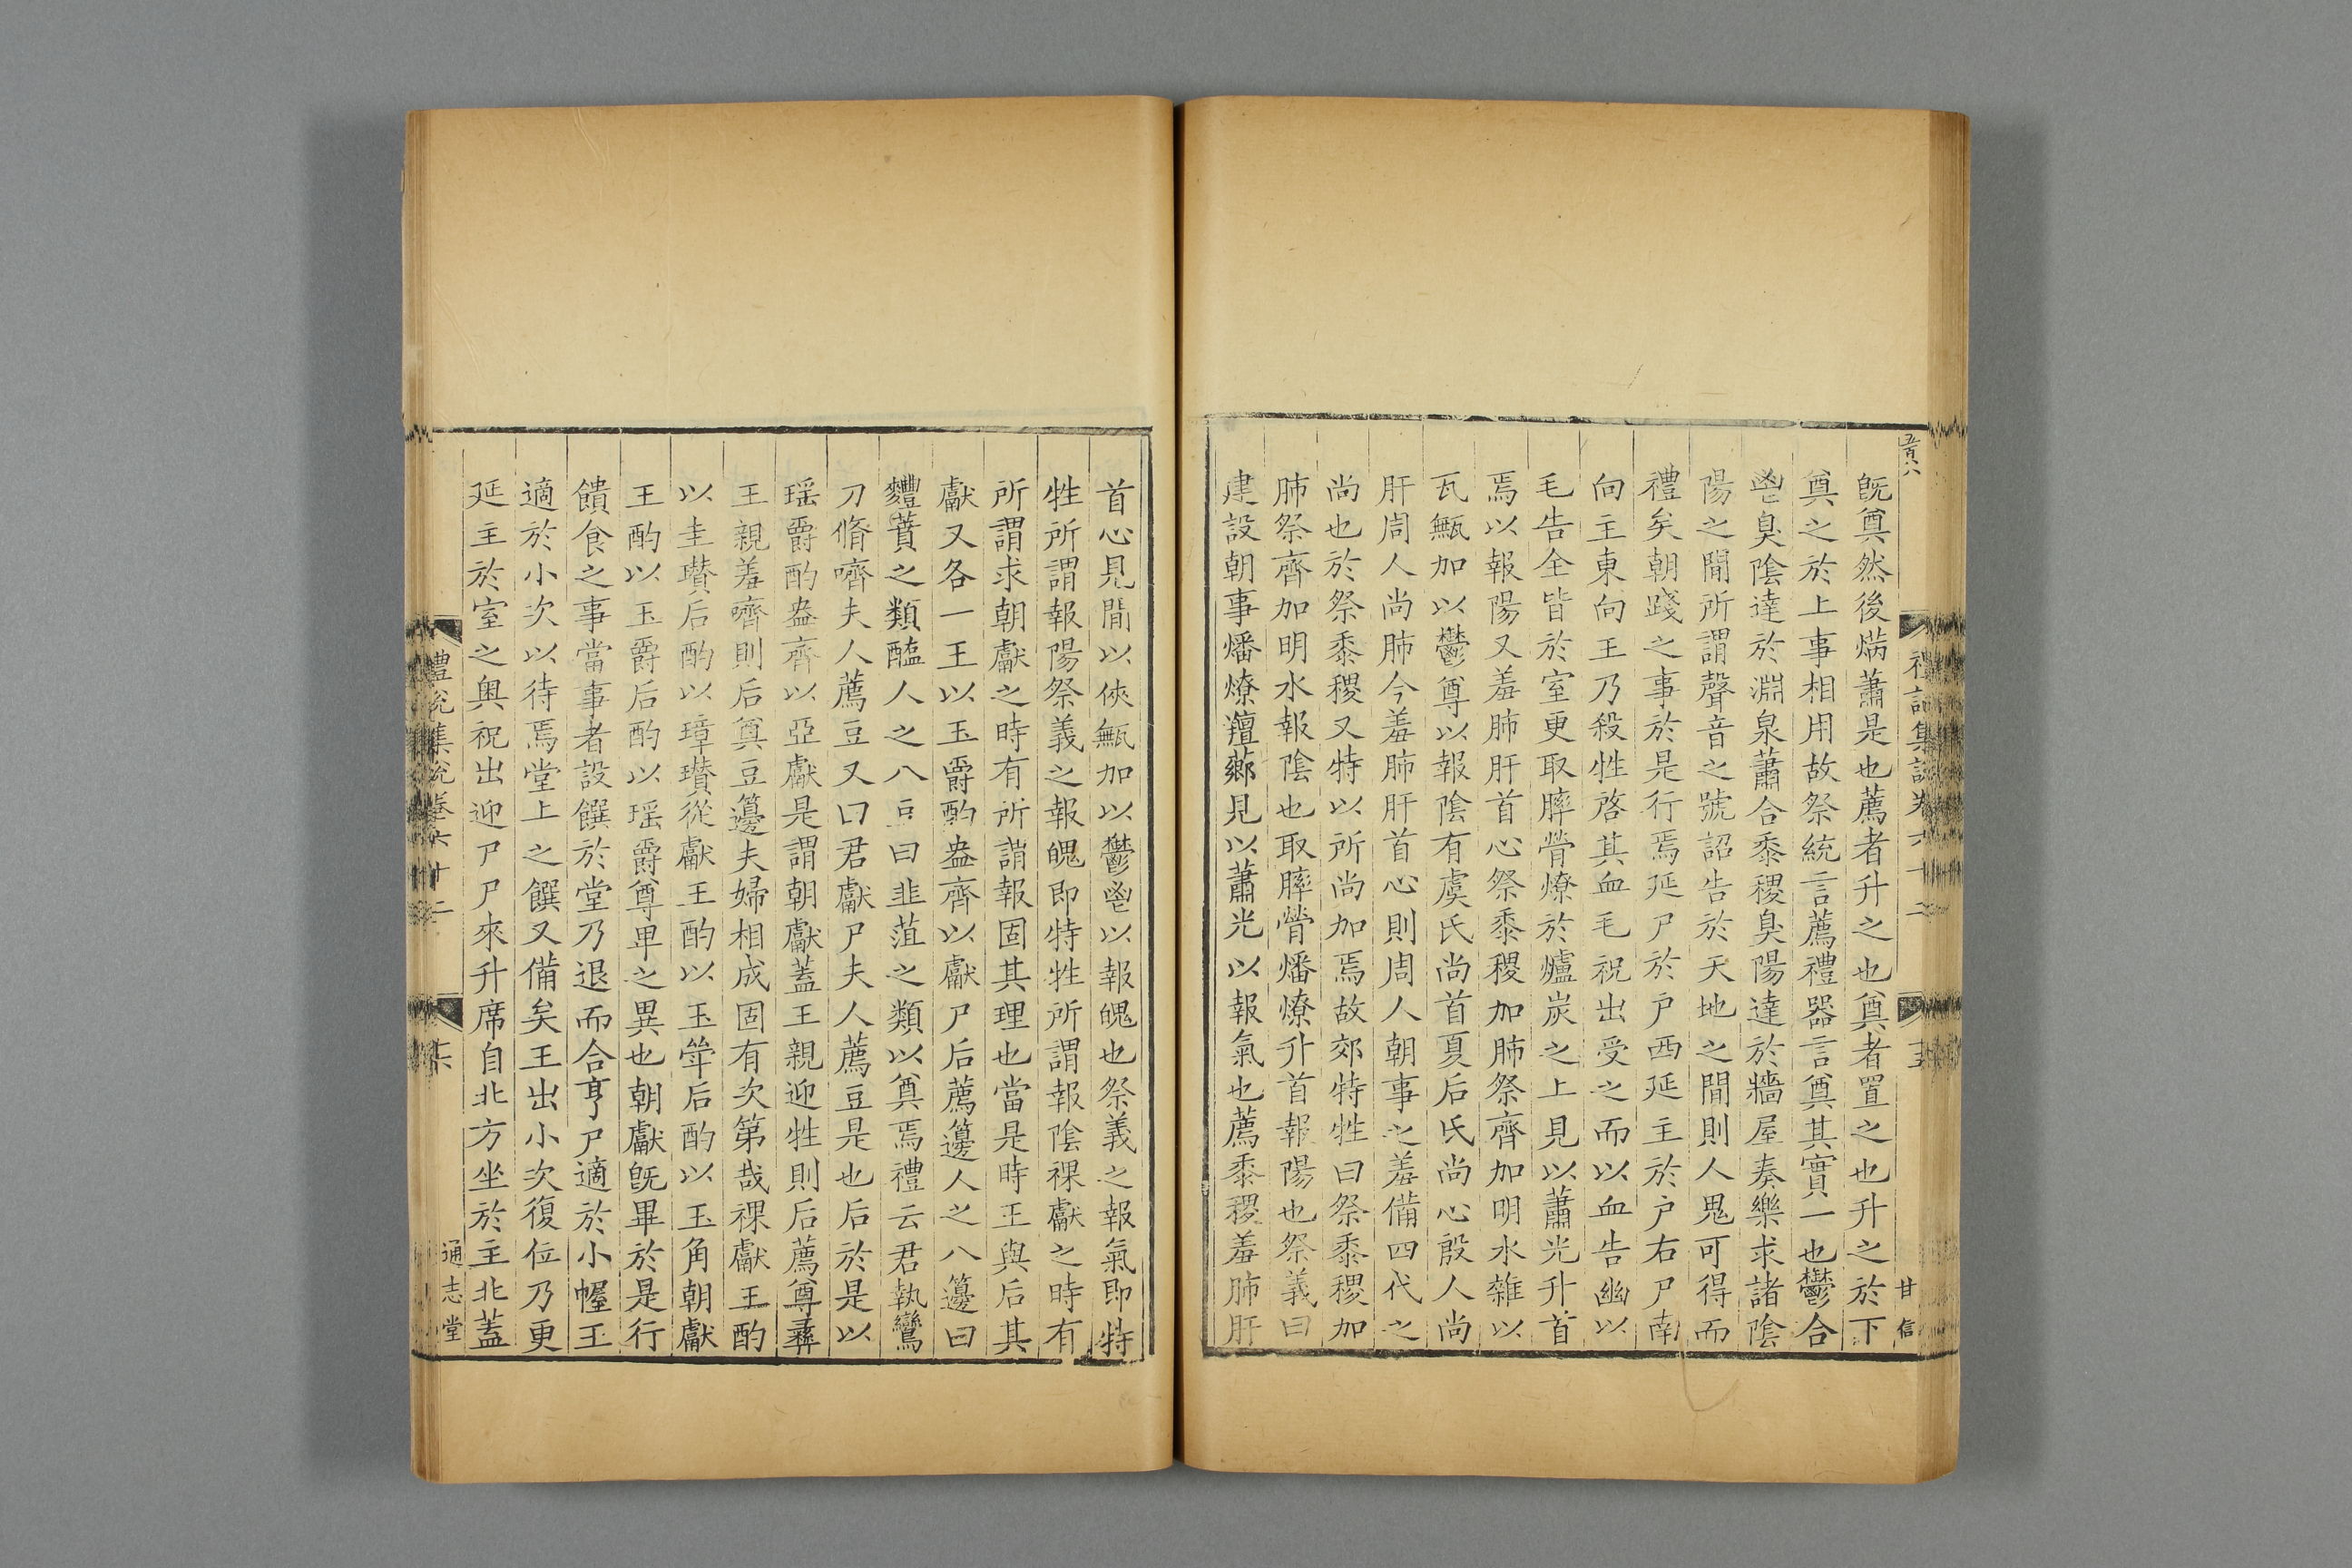 五百八
禮記集說卷六十二
十五
甘信
旣奠然後焫蕭是也薦者升之也奠者置之也升之於下
奠之於上事相用故祭統言薦禮器言奠其實一也鬱合
鬯臭陰達於淵泉蕭合黍稷臭陽達於牆屋奏樂求諸陰
陽之閒所謂聲音之號詔告於天地之閒則人鬼可得而
禮矣朝踐之事於是行焉延尸於戶西延主於戶右尸南
向主東向王乃殺牲啓其血毛祝出受之而以血告幽以
毛告全皆於室更取膟膋燎於爐炭之上見以蕭光升首
焉以報陽又羞肺肝首心祭黍稷加肺祭齊加明水雜以
瓦甒加以鬱尊以報陰有虞氏尚首夏后氏尚心殷人尚
肝周人尚肺今羞肺肝首心則周人朝事之羞備四代之
尚也於祭黍稷又特以所尚加焉故郊特牲曰祭黍稷加
肺祭齊加明水報陰也取膟膋燔燎升首報陽也祭義曰
建設朝事燔燎羶薌見以蕭光以報氣也薦黍稷羞肺肝
首心見閒以俠甒加以鬱鬯以報魄也祭義之報氣即特
牲所謂報陽祭義之報魄即特牲所謂報陰祼獻之時有
所謂求朝獻之時有所謂報固其理也當是時王與后其
獻又各一王以玉爵酌盎齊以獻尸后薦籩人之八籩曰
麷蕡之類醢人之八豆曰韭菹之類以奠焉禮云君執鸞
刀脩嚌夫人薦豆又曰君獻尸夫人薦豆是也后於是以
瑶爵酌盎齊以亞獻是謂朝獻蓋王親迎牲則后薦尊彝
王親羞嚌則后奠豆籩夫婦相成固有次第哉祼獻王酌
以圭瓚后酌以璋瓚從獻王酌以玉斝后酌以玉角朝獻
王酌以玉爵后酌以瑶爵尊卑之異也朝獻旣畢於是行
饋食之事當事者設饌於堂乃退而合亨尸適於小幄王
適於小次以待焉堂上之饌又備矣王出小次復位乃更
延主於室之奥祝出迎尸尸來升席自北方坐於主北蓋
禮記集說卷六十二
十六
通志堂